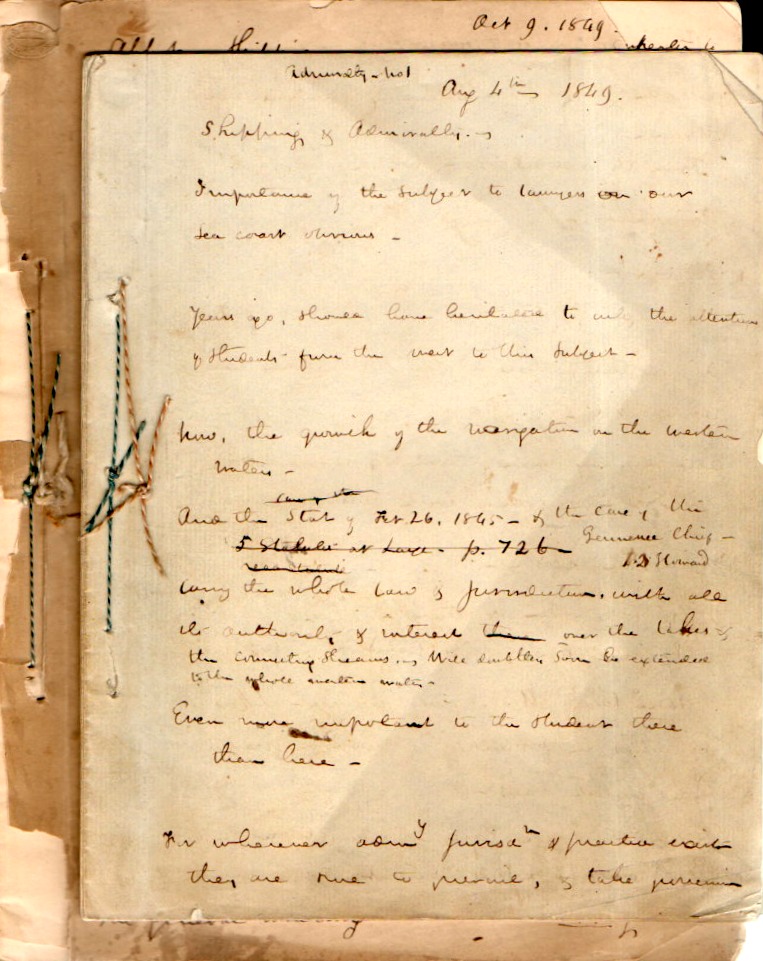 Oct 9. 1849.
Admiralty - No 1
Aug 4th 1849.
Shipping & Admiralty.
Importance of the subject to lawyers on our
sea coast obvious -
Years ago, should have hesitated to the attention
of students from the west to this subject -
Now, the growth of the navigation on the western
waters -
And the Stat of Feb 26, 1845 - & the case of the
Genesee Chief -
5 Statutes at Large - p. 726 -
12 Howard
carry the whole law & jurisdiction, with all
its authority & interest over the lakes &
the connecting streams. Will doubtless soon be extended
to the whole western waters -
Even more important to the student there
than here -
For wherever admy jurisdn & practice exist
they are sure to prevail, & take possession